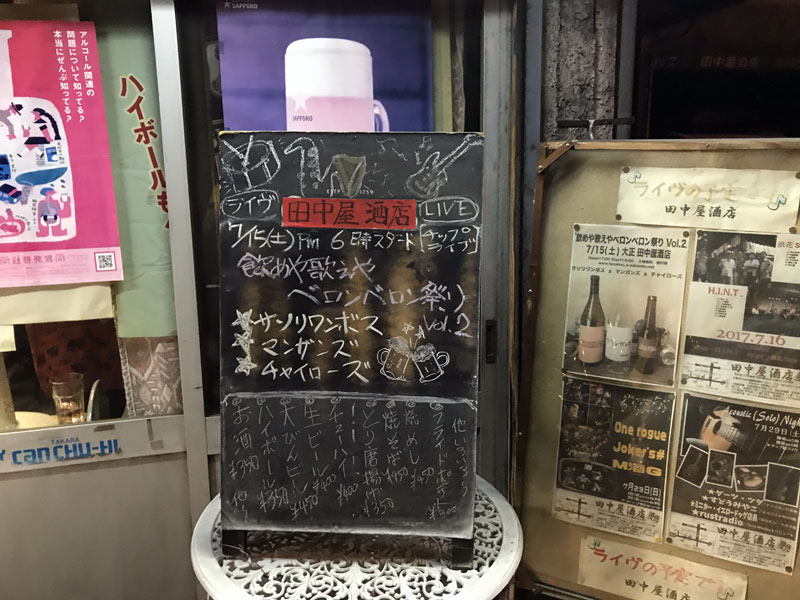 アルコール関連の
問題について知ってる?
本当にぜんぶ知ってる?
ハイボール
TAKARA
CAN CHU-HI
★ SAPPORO
SAPPORO
ライヴ
田中屋酒店
LIVE
7/15(土) Pm 6時スタート
[チップライブ]
飲めや歌えや
ベロンベロン祭り
Vol.2
サソリワンボス
マンガンズ
チャイローズ
他いろいろ
フライドポテト ¥300
焼めし ¥450
焼そば ¥450
とり唐揚げ ¥350
チューハイ ¥400
生ビール ¥400
大びんビール ¥450
ハイボール ¥350
お酒 ¥350
ライヴの予定
田中屋酒店
"飲めや歌えやベロンベロン祭り Vol.2
7/15(土) 大正 田中屋酒店
サソリワンボス × マンガンズ × チャイローズ
浪花
H.I.N.T.
2017.7.16
田中屋酒店
One rogue
Joker's#
7月23日(日)
田中屋酒店
Acoustic (Solo) Night
7月29日(土)
★rustradio
田中屋酒店
ライヴの予定で
田中屋酒店